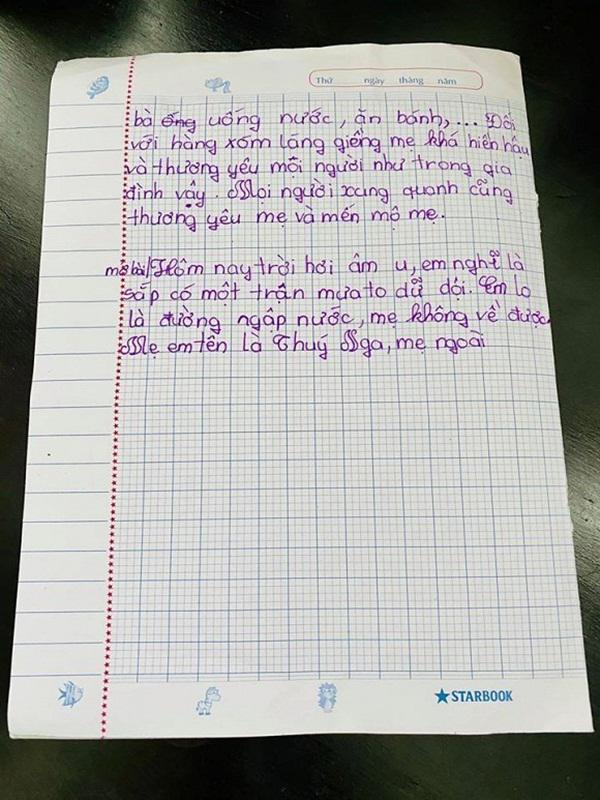 Thứ ngày tháng năm
bà ống uống nước, ăn bánh,... Đối
với hàng xóm láng giềng mẹ khá hiền hậu
và thương yêu mọi người như trong gia
đình vậy. Mọi người xung quanh cũng
thương yêu mẹ và mến mộ mẹ.
mở bài/Hôm nay trời hơi âm u, em nghĩ là
sắp có một trận mưa to dữ dội. Em lo
là đường ngập nước, mẹ không về được.
Mẹ em tên là Thuý Nga, mẹ ngoài
STARBOOK